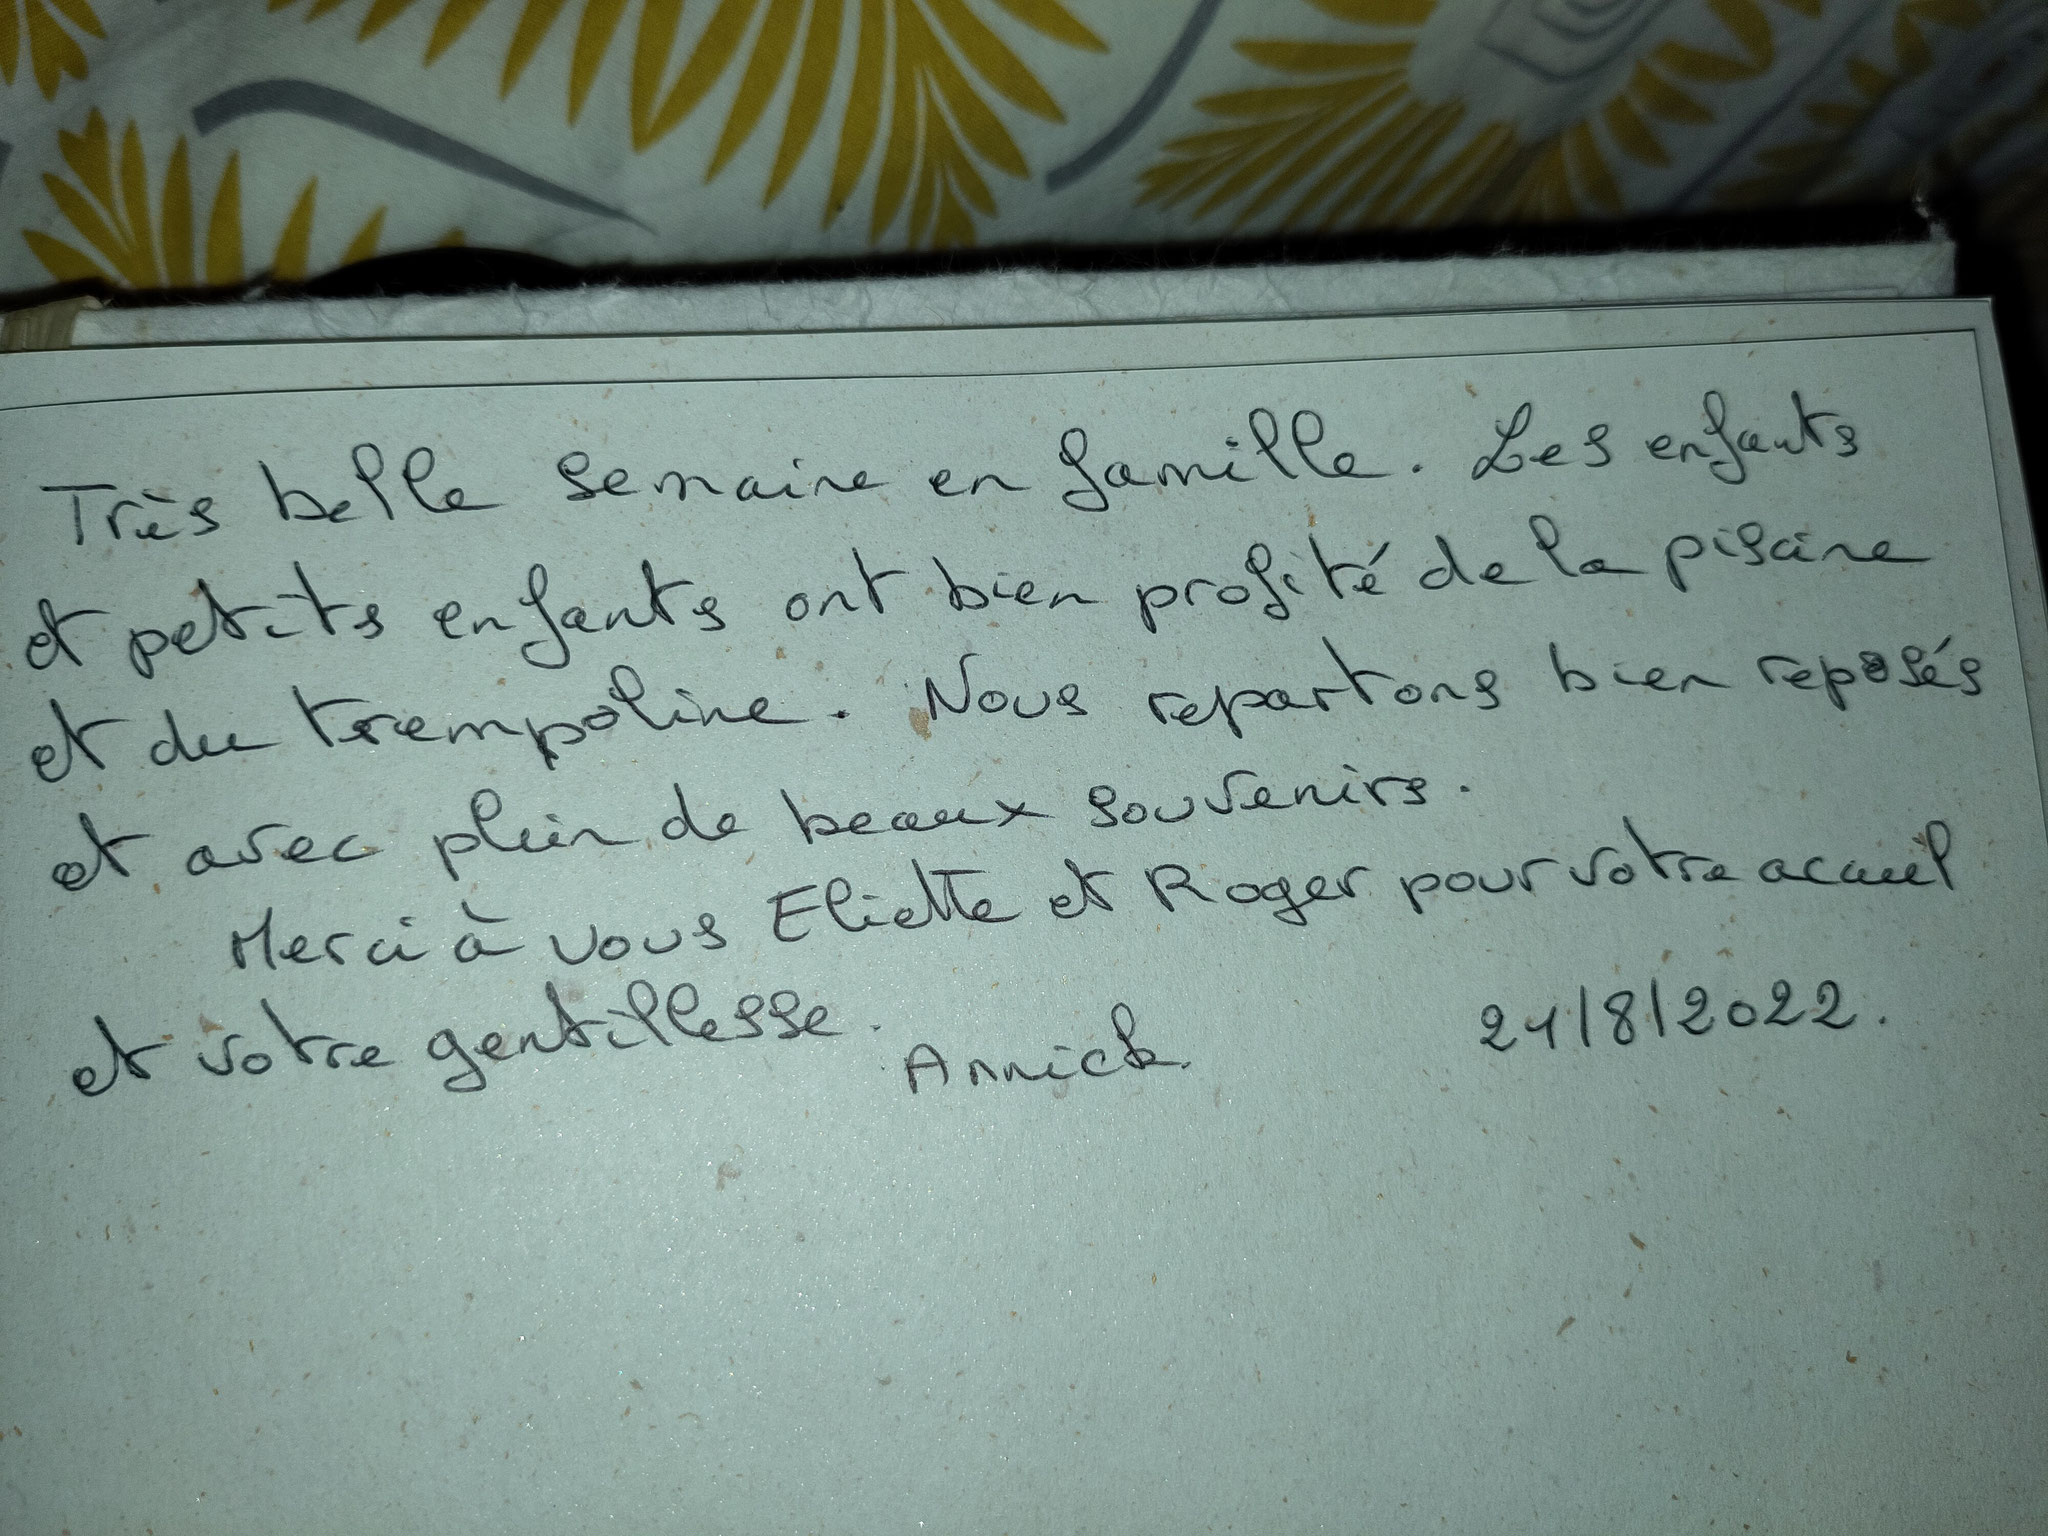 Très belle semaine en famille. Les enfants
et petits enfants ont bien profité de la piscine
et du trempoline. Nous repartons bien reposés
et avec plein de beaux souvenirs.
Merci à vous Eliette et Roger pour votre acueil
et votre gentillesse.
Annick 21/8/2022.